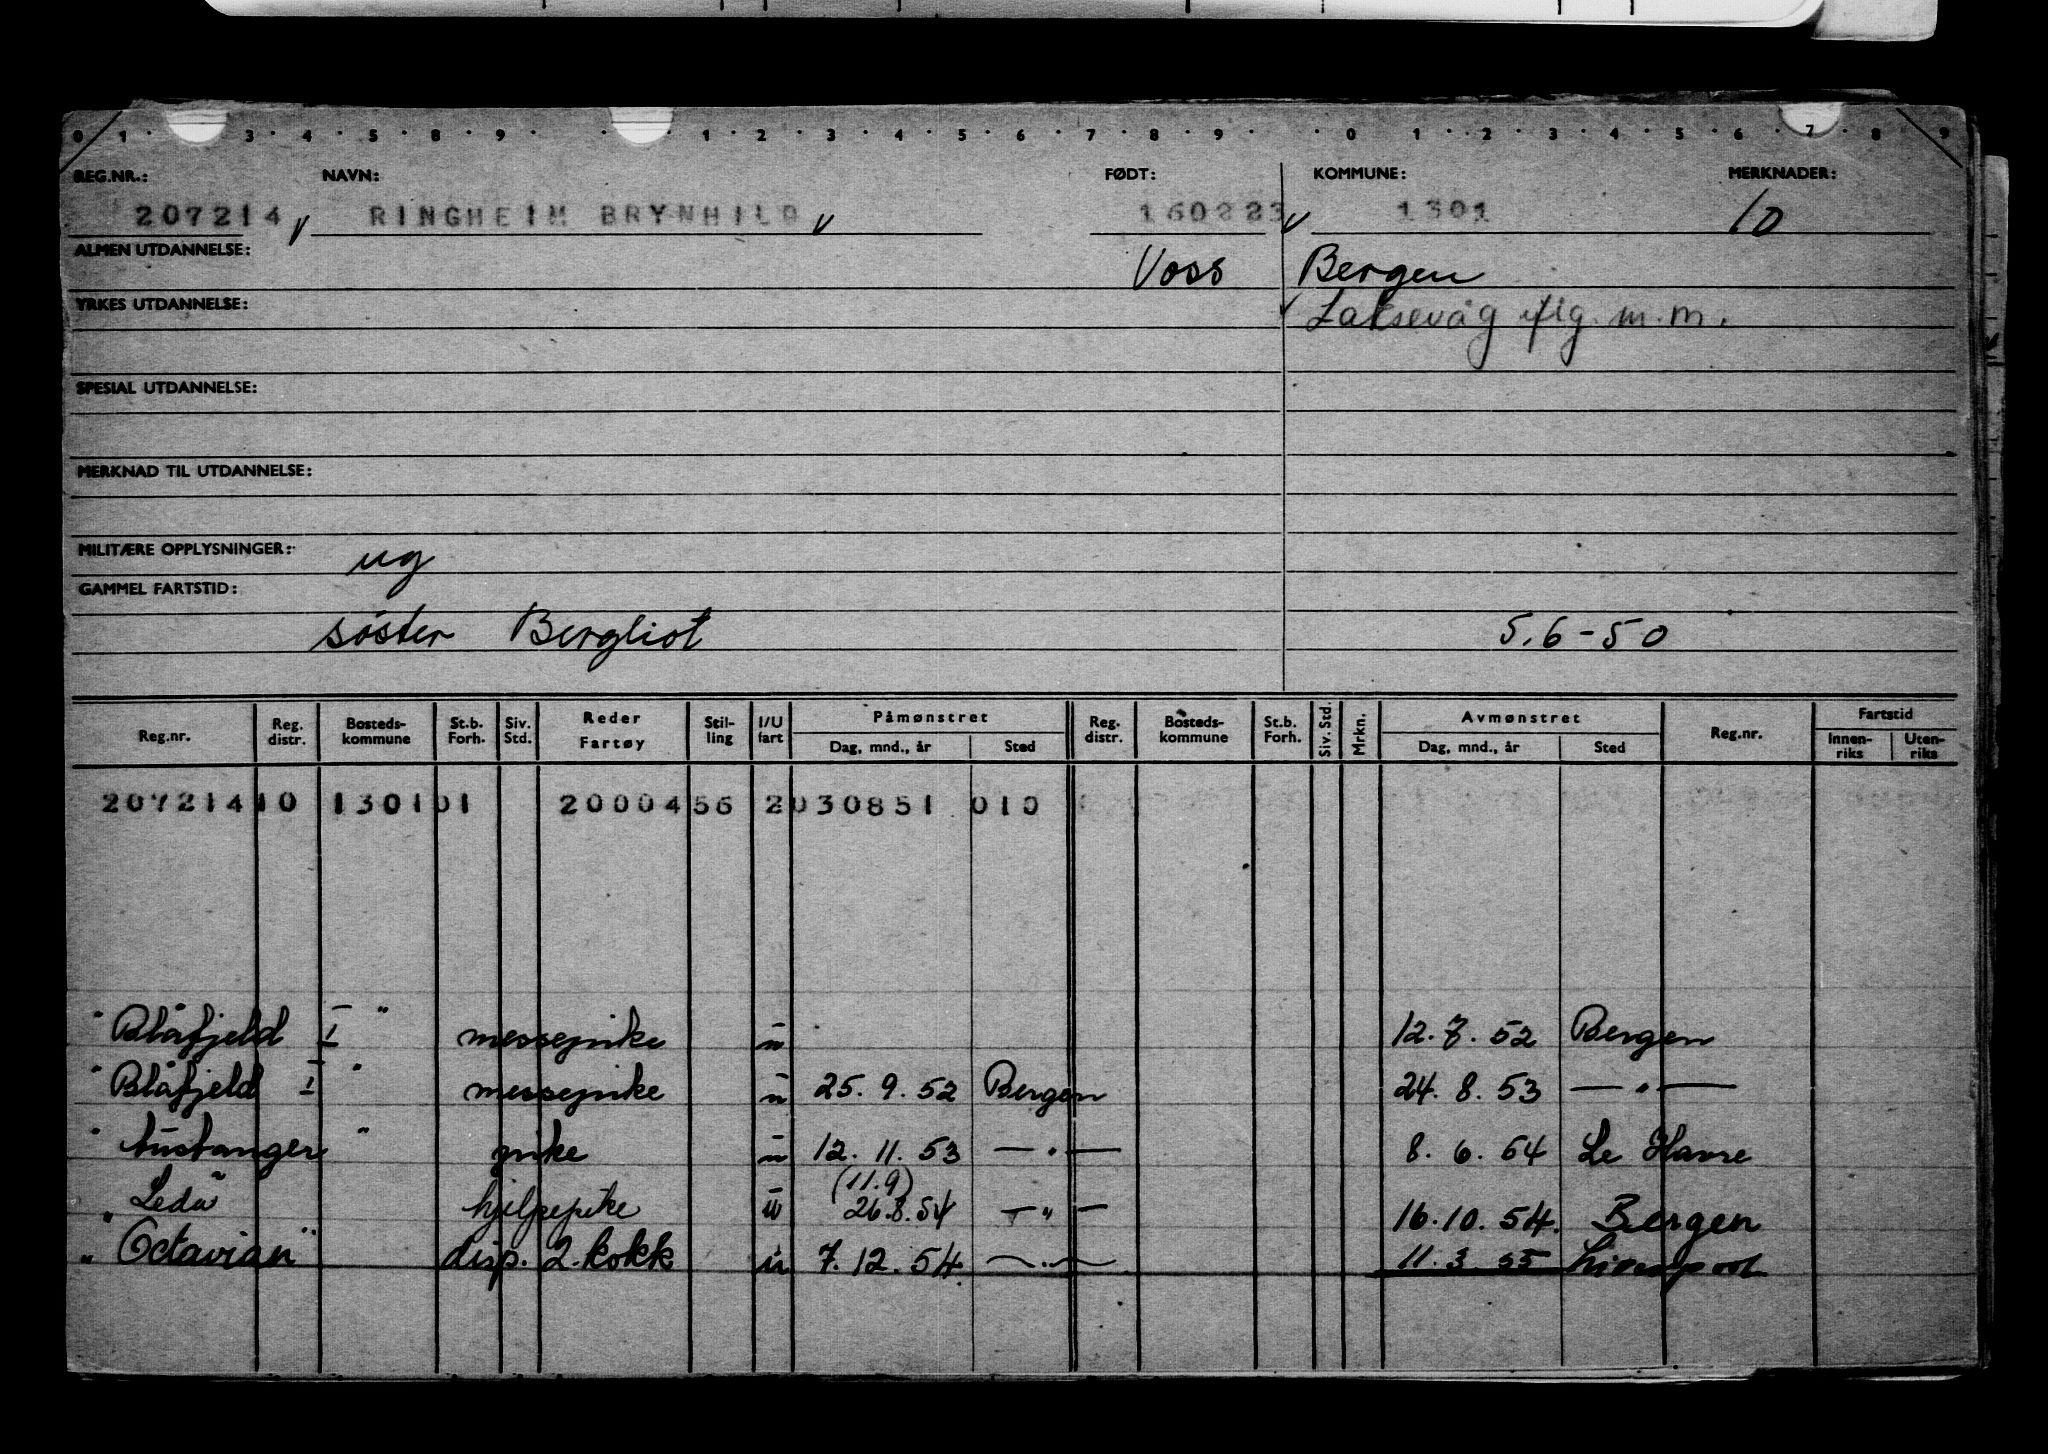 0 1 3 4 5 8 9 1 2 3 4 5 6 7 8 9 0 1 2 3 4 5 6 7 8 9
REG.NR.: NAVN: FØDT: KOMMUNE: MERKNADER:
207214 RINGHEIM BRYNHILD 160223 1301 10
ALMEN UTDANNELSE: Voss Bergen
YRKES UTDANNELSE: Laksevåg iflg. m.m.
SPESIAL UTDANNELSE:
MERKNAD TIL UTDANNELSE:
MILITÆRE OPPLYSNINGER: ug
GAMMEL FARTSTID:
söster Bergliot 5.6-50
Reg.nr. Reg. distr. Bosteds-kommune St.b. Forh. Siv. Std. Reder Fartøy Stil-ling I/U fart Påmønstret Dag, mnd., år Sted Reg. distr. Bosteds-kommune St.b. Forh. Siv. Std. Mrkn. Avmønstret Dag, mnd., år Sted Reg.nr. Fartstid Innen-riks Uten-riks
207214 10 1301 01 2000456 2 030851 010
" Blåfjeld I " messepike u 12.7.52 Bergen
" Blåfjeld I " messepike u 25.9.52 Bergen 24.8.53 — " —
" Austanger " pike u 12.11.53 — " — 8.6.54 Le Havre
(11.9)
" Leda " hjelpepike u 26.8.54 — " — 16.10.54. Bergen
" Octavian " disp. 2. kokk u 7.12.54. — " — 11.3.55 Liverpool